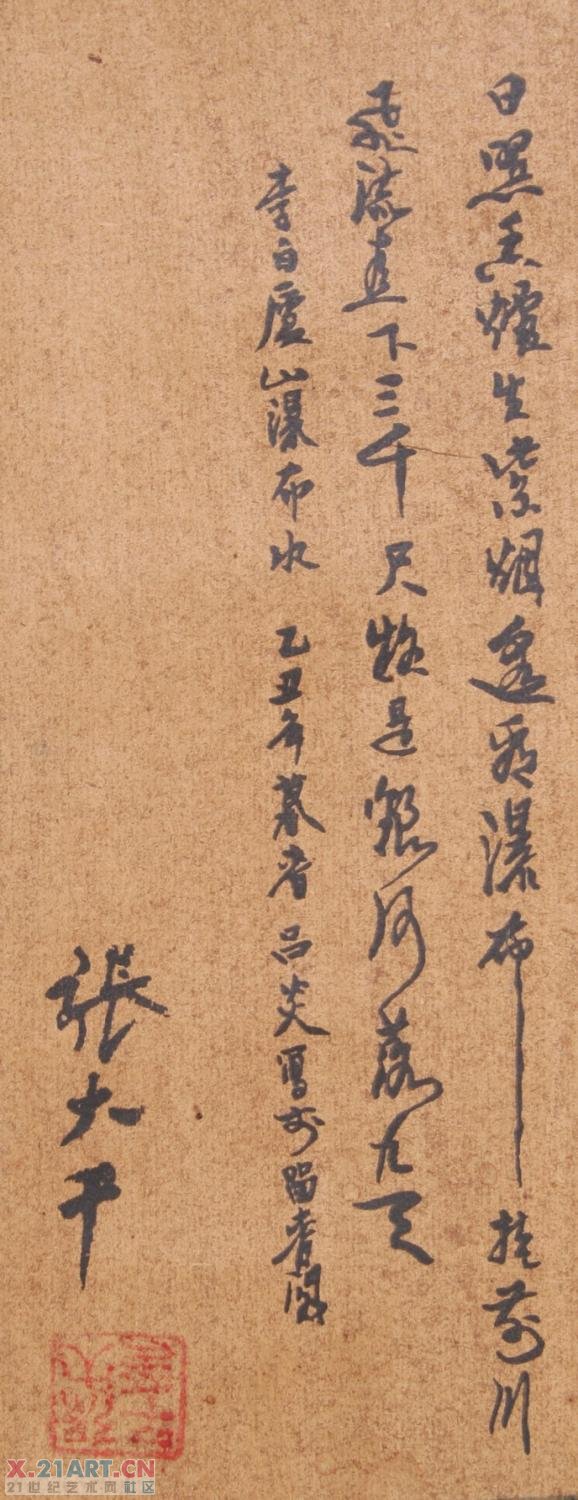 日照香炉生紫烟遥看瀑布挂前川
飞流直下三千尺疑是银河落九天
李白庐山瀑布水 乙丑年暮春吕炎写於留春阁
張大千
X.21ART.CN
21世纪艺术网社区